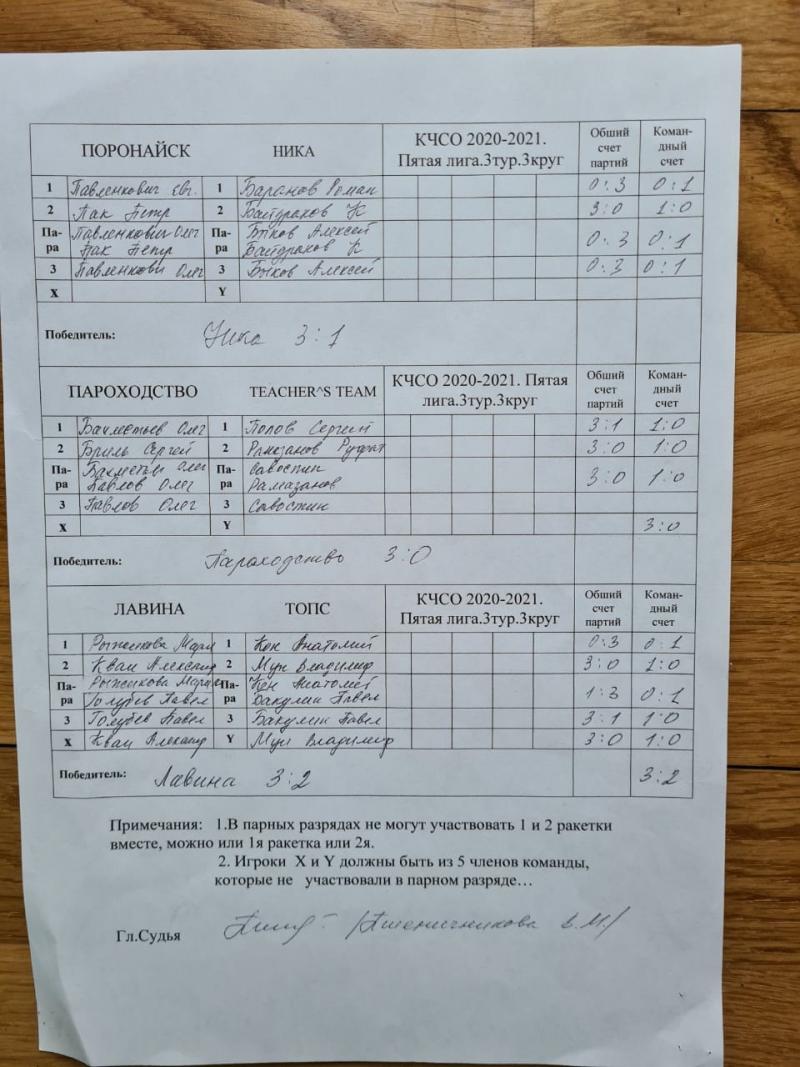 ПОРОНАЙСК НИКА КЧСО 2020-2021. Пятая лига.3тур.3круг Обший счет партий Коман-дный счет
1 Павленкович Евг. 1 Баранов Роман 0:3 0:1
2 Пак Петр 2 Байдраков К 3:0 1:0
Па-ра Павленкович Олег Па-ра Быков Алексей 0:3 0:1
Пак Петр Байдраков К
3 Павленкови Олег 3 Быков Алексей 0:3 0:1
X Y
Победитель: Ника 3:1
ПАРОХОДСТВО TEACHER^S TEAM КЧСО 2020-2021. Пятая лига.3тур.3круг Обший счет партий Коман-дный счет
1 Бахметьев Олег 1 Попов Сергей 3:1 1:0
2 Бриль Сергей 2 Рамазанов Руфат 3:0 1:0
Па-ра Бахметьев Олег Па-ра Савостин 3:0 1:0
Павлов Олег Рамазанов
3 Павлов Олег 3 Савостин
X Y 3:0
Победитель: Пароходство 3:0
ЛАВИНА ТОПС КЧСО 2020-2021. Пятая лига.3тур.3круг Обший счет партий Коман-дный счет
1 Рыженкова Мария 1 Кен Анатолий 0:3 0:1
2 Кван Александ 2 Мун Владимир 3:0 1:0
Па-ра Рыженкова Мария Па-ра Кен Анатолий 1:3 0:1
Голубев Павел Бакулин Павел
3 Голубев Павел 3 Бакулин Павел 3:1 1:0
X Кван Александ Y Мун Владимир 3:0 1:0
Победитель: Лавина 3:2 3:2
Примечания: 1.В парных разрядах не могут участвовать 1 и 2 ракетки
вместе, можно или 1я ракетка или 2я.
2. Игроки X и Y должны быть из 5 членов команды,
которые не участвовали в парном разряде…
Гл.Судья /Пшеничникова В.М./